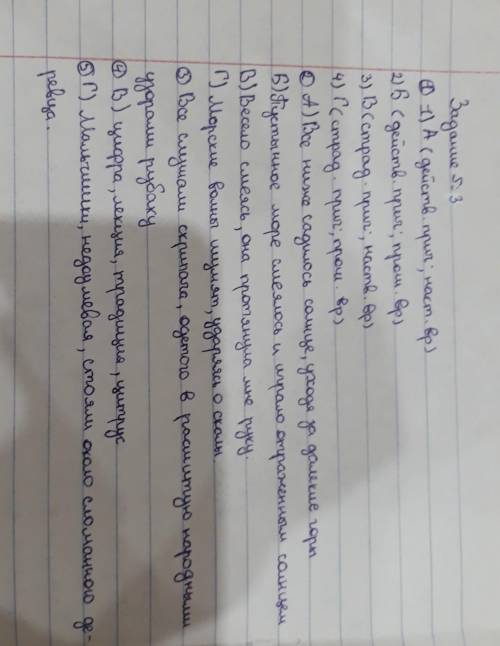 Задание 5.3
① 1) А (действ. прич; наст. вр)
2) Б (действ. прич; прош. вр)
3) В (страд. прич; наств. вр)
4) Г (страд. прич; прош. вр)
② А) Все ниже садилось солнце, уходя за далекие горы
Б) Пустынное море смеялось и играло отраженным солнцем
В) Весело смеясь, она протянула мне руку.
Г) Морские волны шумят, ударяясь о скалы.
③ Все слушали скрипача, одетого в расшитую народными
узорами рубаху
④ В) цифра, лекция, традиция, цитрус
⑤ Г) Мальчишки, недоумевая, стояли около сломанного де-
ревца.